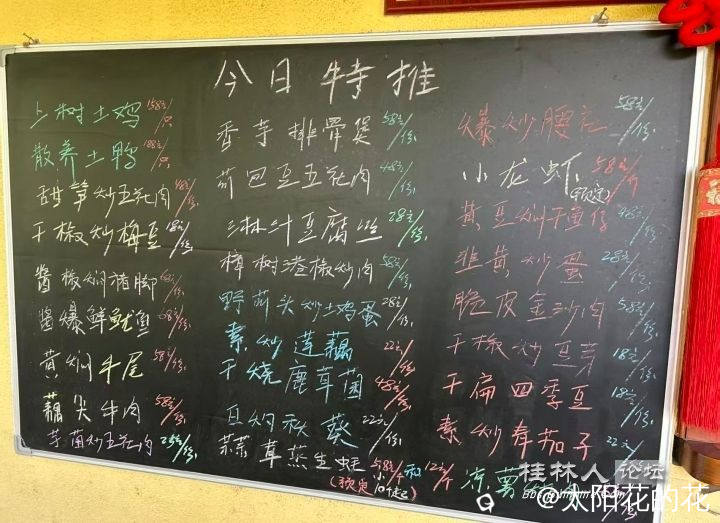 今日特推
上树土鸡 158元/只
散养土鸭 188元/只
甜笋炒五花肉 48元/份
干椒炒梅豆 18元/份
酱椒焖猪脚 68元/份
酱爆鲜鱿鱼 68元/份
黄焖牛尾 58元/份
藕尖牛肉 58元/份
芋菌炒五花肉 28元/份
香芋排骨煲 58元/份
荷包豆五花肉 48元/份
淋汁豆腐丝 28元/份
樟树港椒炒肉 58元/份
野荷头炒土鸡蛋 28元/份
素炒莲藕 22元/份
干烧鹿茸菌 48元/份
豆焖秋葵 22元/份
蒜蓉蒸生蚝 58元/小个和12元/个
(预定10个起)
爆炒腰花 58元/份
小龙虾 58元/个
(预定)
黄豆焖干鱼仔 48元/份
韭黄炒蛋 28元/份
脆皮金沙肉 58元/份
干椒炒豆芽 18元/份
干扁四季豆 18元/份
素炒寿茄子 22元/份
凉薯
桂林人论坛
@太阳花的花